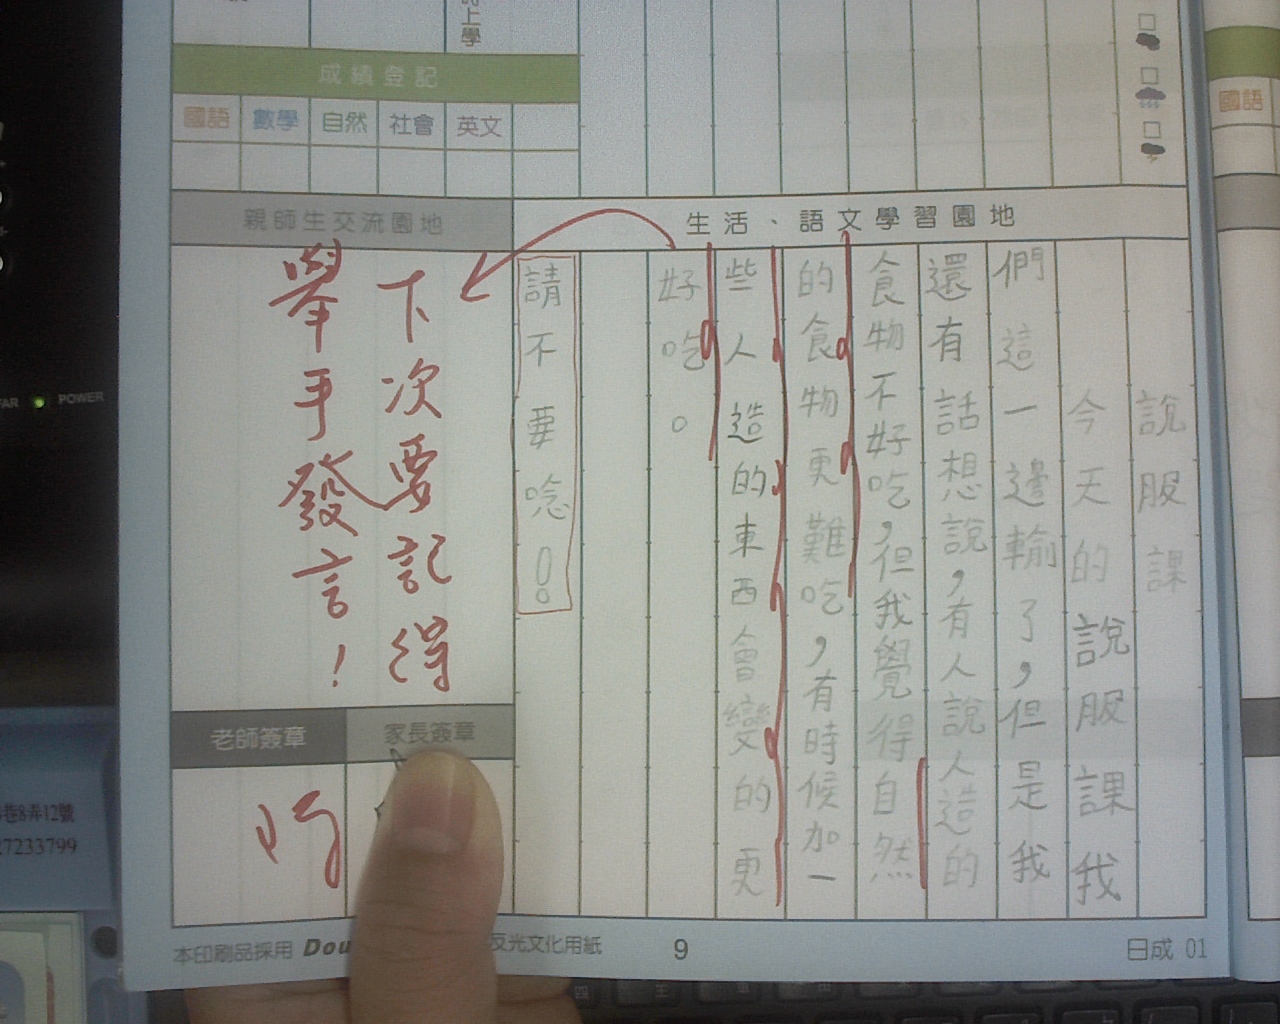 上學
成績登記
國語 數學 自然 社會 英文
國語
親師生交流園地
生活、語文學習園地
說服課
今天的說服課我
們這一邊輸了，但是我
還有話想說，有人說人造的
食物不好吃，但我覺得自然
的食物更難吃，有時候加一
些人造的東西會變的更
好吃。
請不要唸!
下次要記得
舉手發言！
老師簽章
家長簽章
本印刷品採用 Dou
反光文化用紙
9
日成 01
巷8弄12號
27233799
FAR
POWER